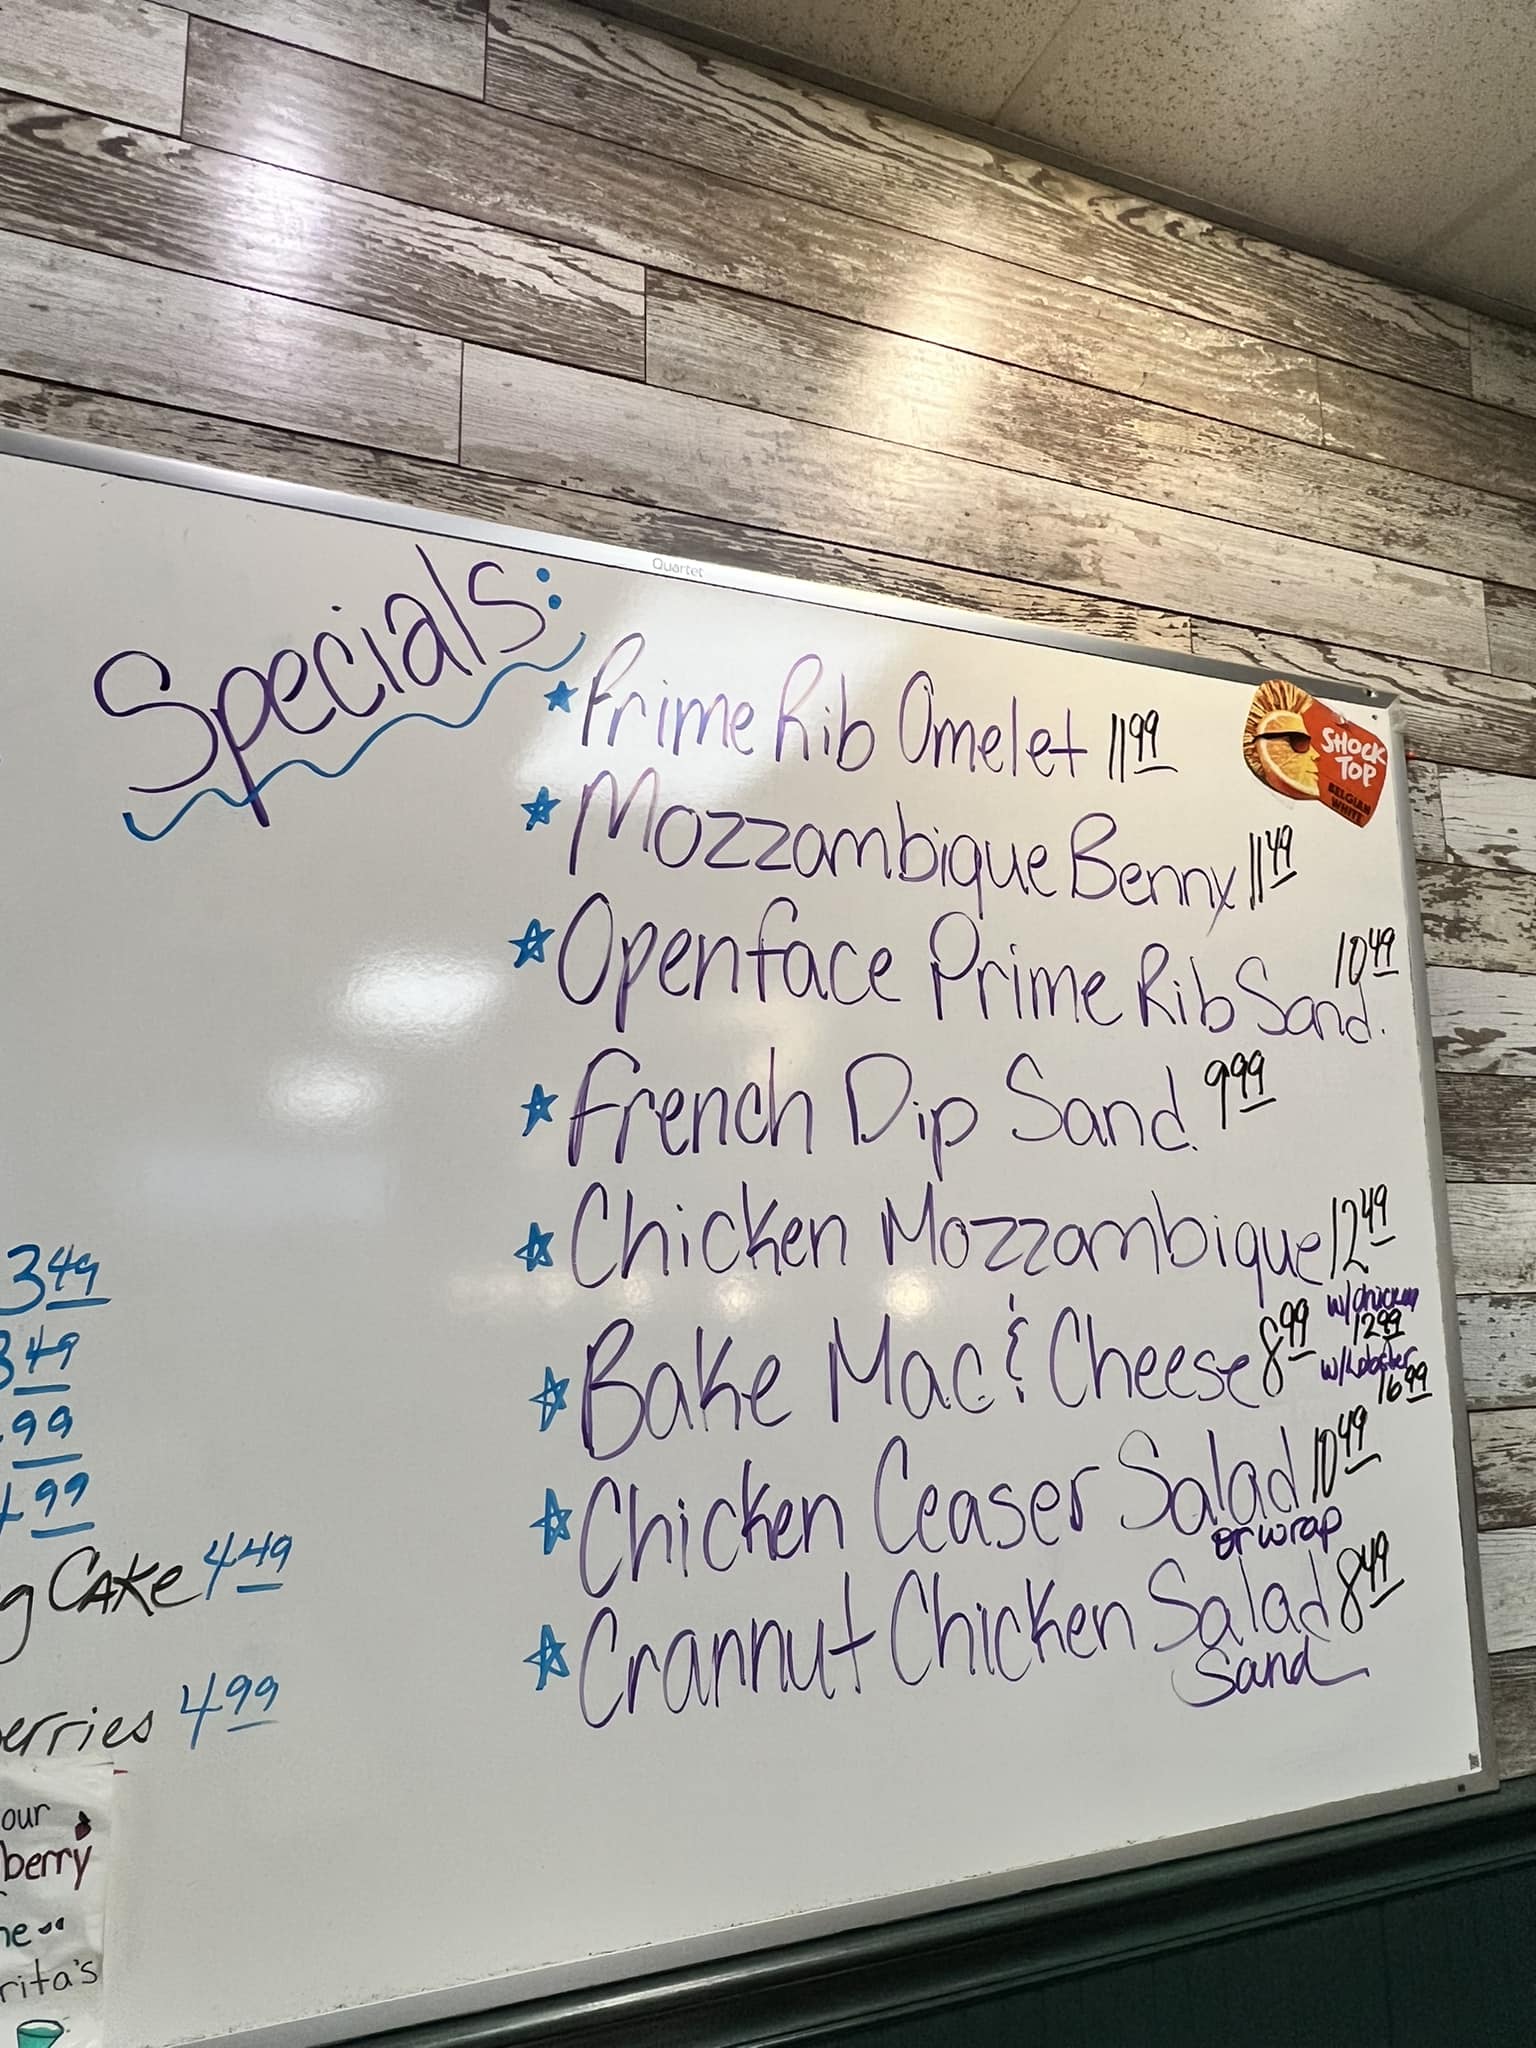 Quartet
Specials:
Prime Rib Omelet 11.99
SHOCK
TOP
BELGIAN
WHITE
Mozzambique Benny 11.49
Openface Prime Rib Sand. 10.49
French Dip Sand. 9.99
Chicken Mozzambique 12.49
Bake Mac & Cheese 8.99
w/chicken
12.99
w/Lobster
16.99
Chicken Ceaser Salad 10.49
or wrap
Crannut Chicken Salad 8.49
Sand
3.49
3.49
.99
4.99
g CAKE 4.49
erries 4.99
our
berry
ne..
rita's